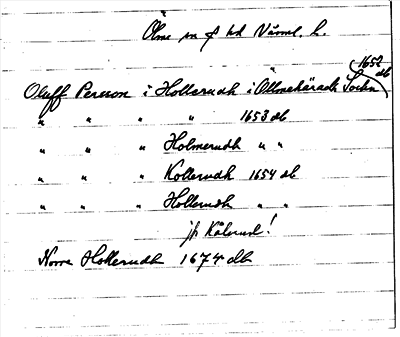 Ölme sn o hd Värml. l.
1652 db
Oluff Persson i Hollerudh i Ollmehäradt Sochn
" " " " 1653 db
" " " Holmerudh " "
" " " Kollerudh 1654 db
" " " Hollerudh " "
jfr Kålerud!
Norre Hollerudh 1674 db